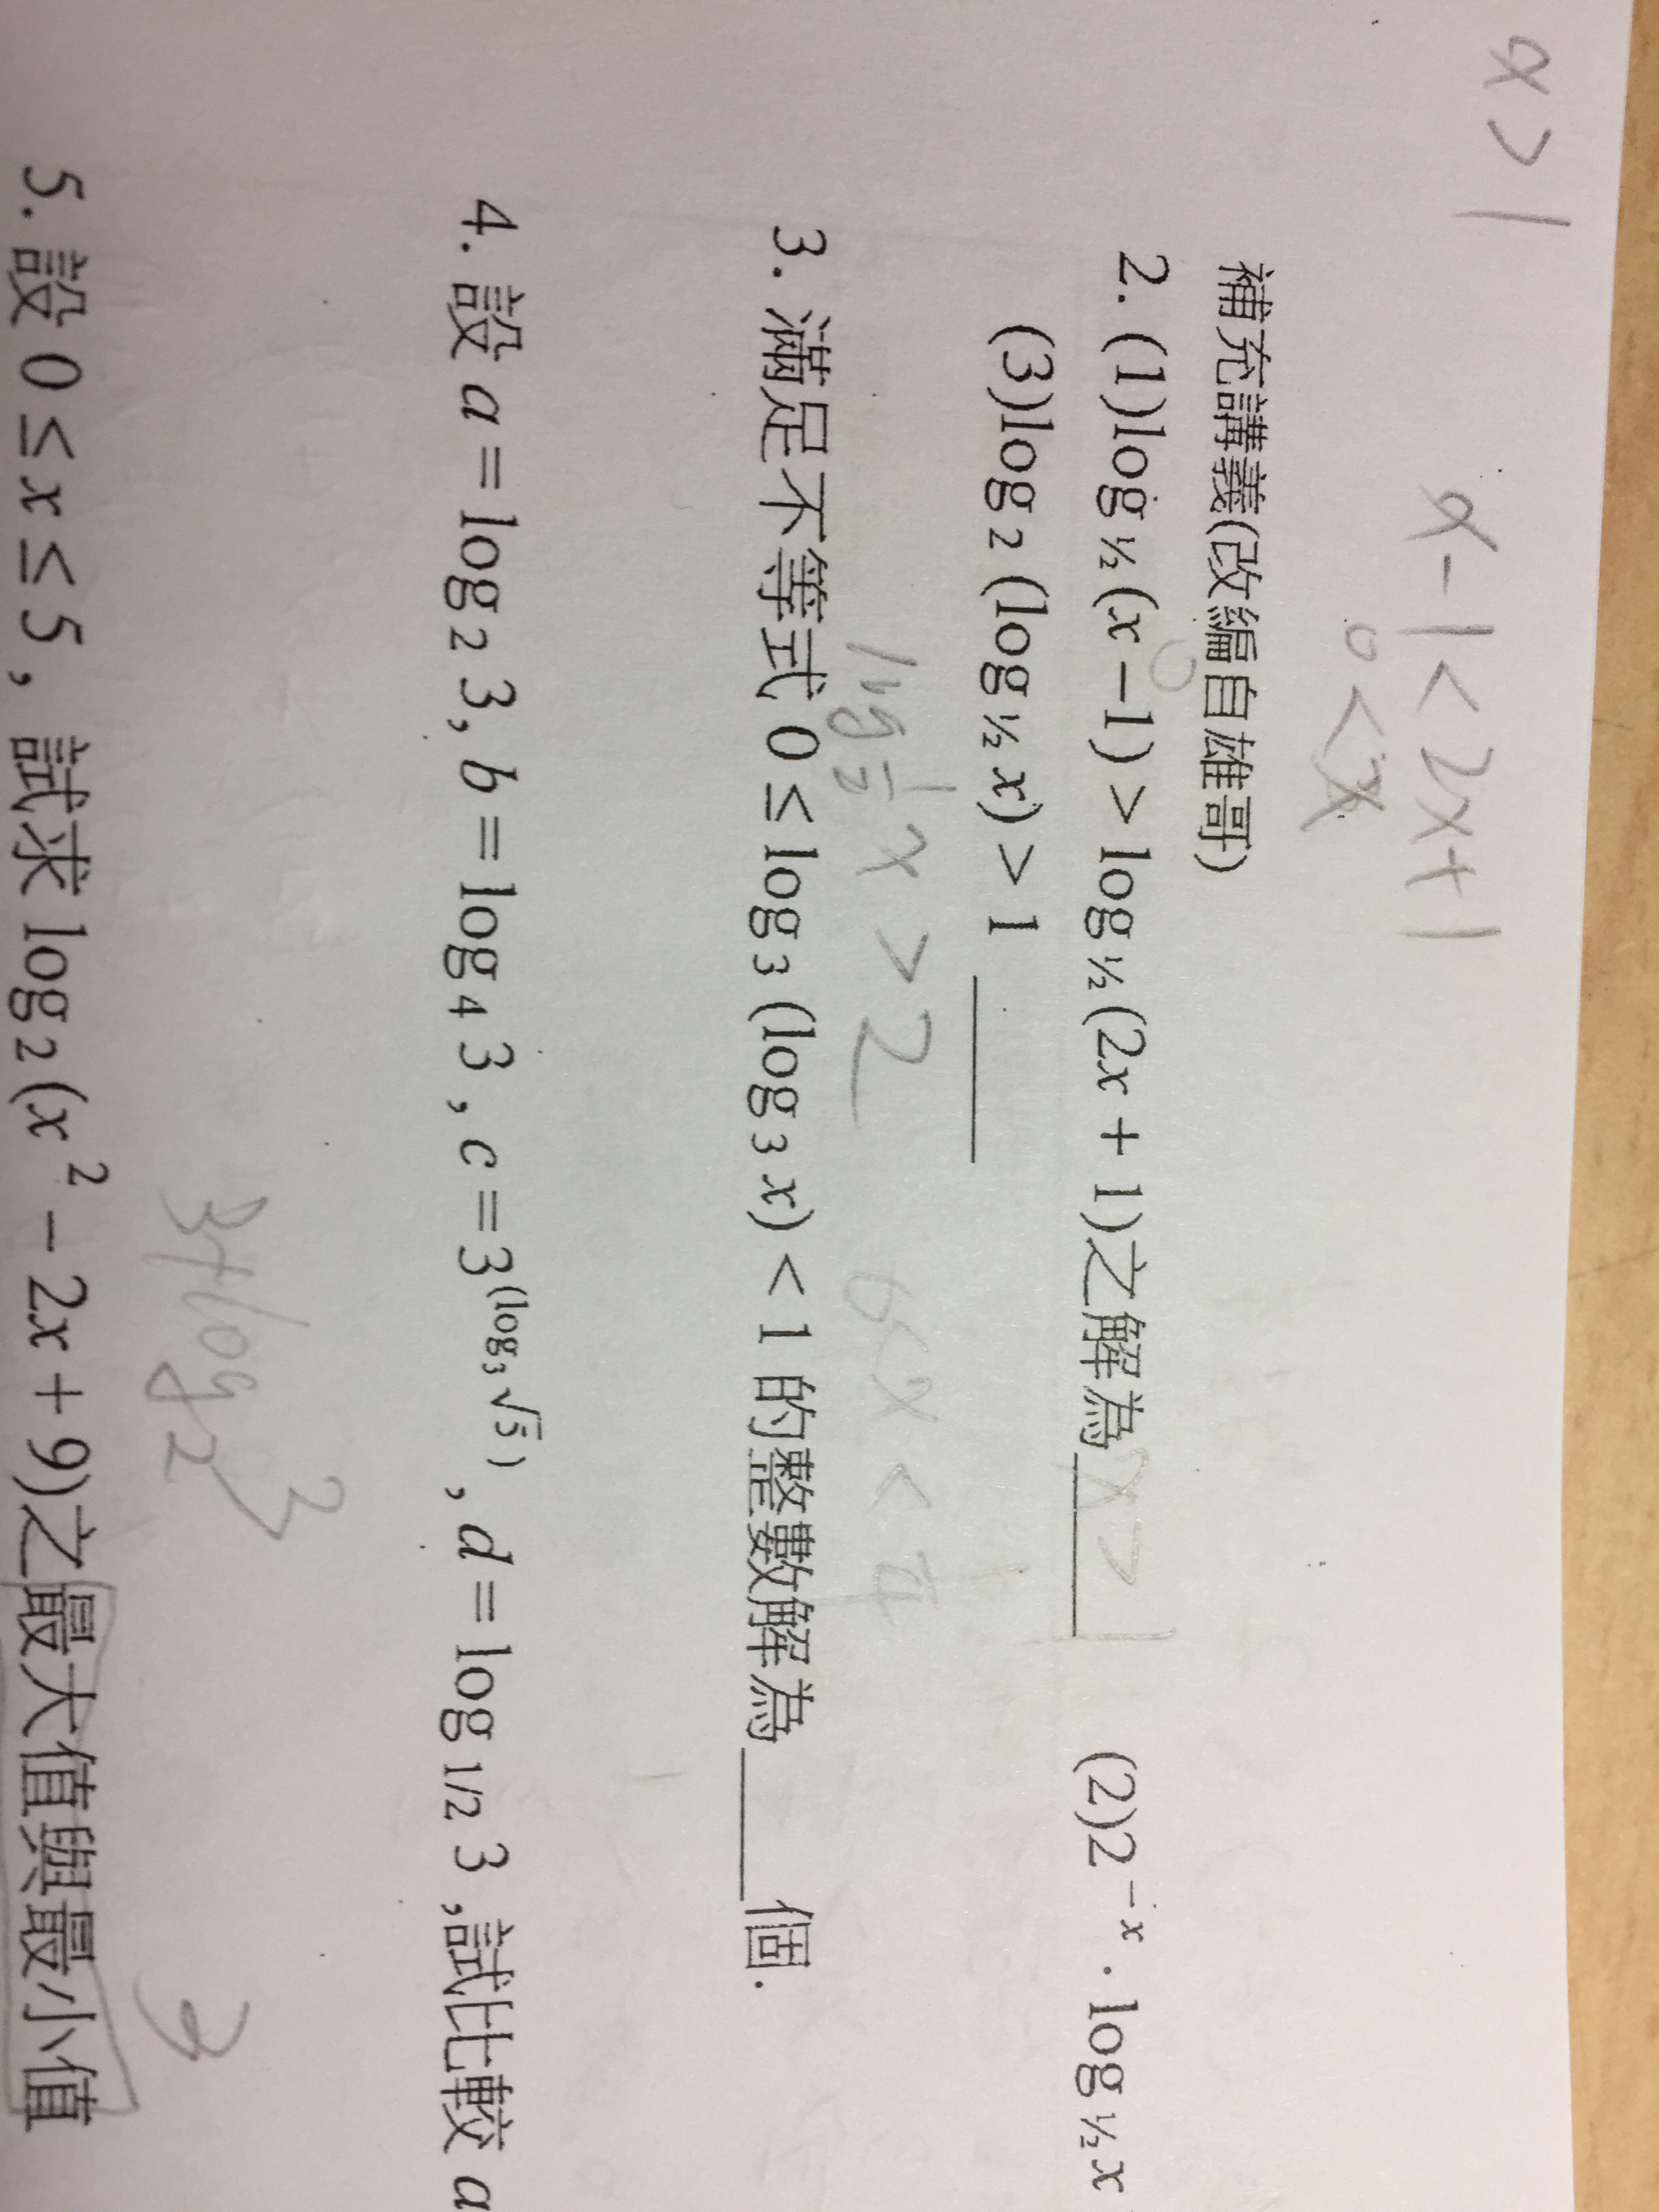 x>1
x-1<2x+1
0<x
補充講義(改編自雄哥)
2. (1)log ½ (x −1) > log ½ (2x + 1)之解為 x>1 (2)2⁻ˣ · log ½ x
(3)log ₂ (log ½ x) > 1
log 1/2 x > 2
0<x<1/4
3. 滿足不等式 0 ≤ log ₃ (log ₃ x) < 1 的整數解為____個.
4. 設 a = log ₂ 3, b = log ₄ 3 , c = 3^(log₃√5) , d = log 1/2 3 ,試比較 a
3+log₂3
3
5. 設 0 ≤ x ≤ 5 , 試求 log ₂ (x² − 2x + 9)之最大值與最小值